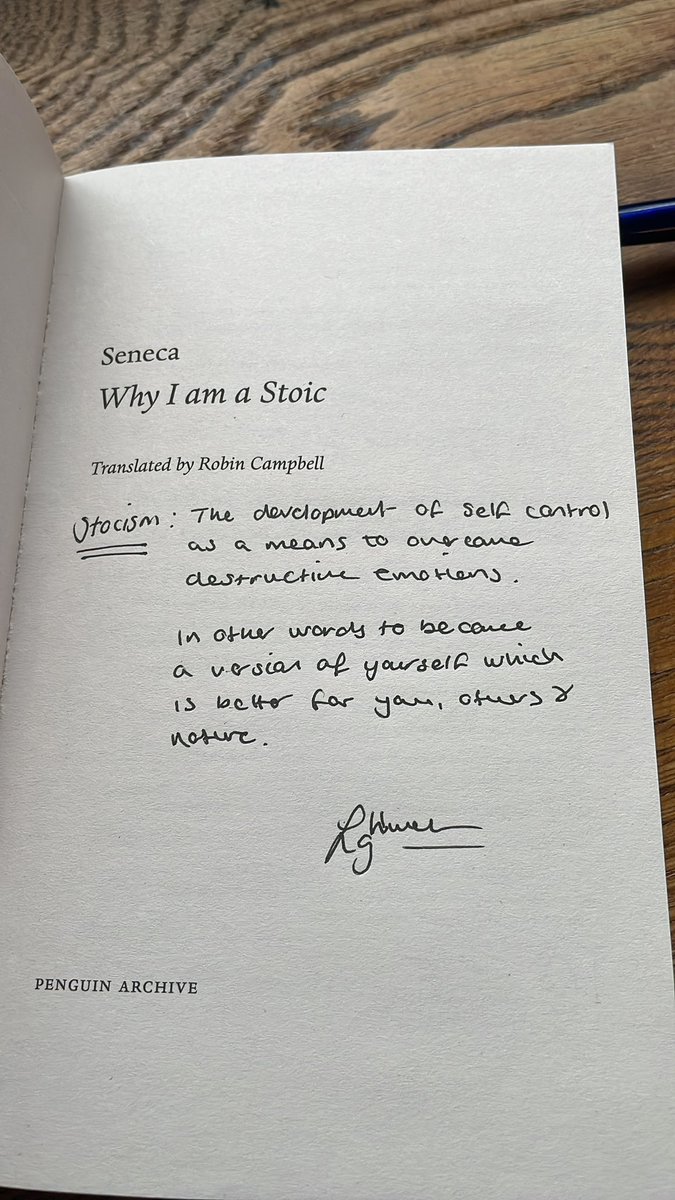 Seneca
Why I am a Stoic
Translated by Robin Campbell
Stocism: The development of self control
as a means to overcome
destructive emotions.
In other words to become
a version of yourself which
is better for you, others &
nature.
PENGUIN ARCHIVE